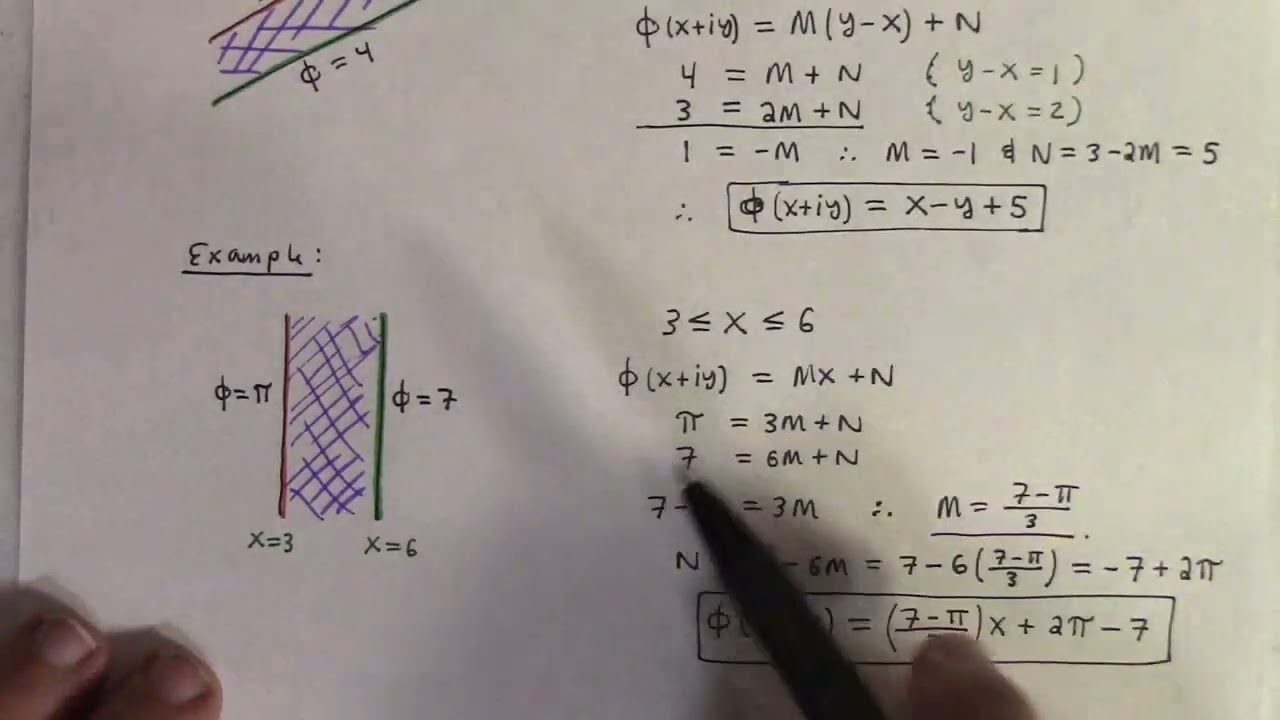 ϕ = 4
ϕ(x+iy) = M(y-x) + N
4 = M + N ( y-x = 1 )
3 = 2M + N ( y-x = 2 )
1 = -M ∴ M = -1 & N = 3-2M = 5
∴ ϕ(x+iy) = x-y+5
Example:
ϕ=π
ϕ=7
x=3
x=6
3 ≤ x ≤ 6
ϕ(x+iy) = Mx + N
π = 3M + N
7 = 6M + N
7 - = 3M ∴ M = \frac{7-π}{3}.
N - 6M = 7 - 6(\frac{7-π}{3}) = -7 + 2π
ϕ( ) = (\frac{7-π}{})x + 2π - 7